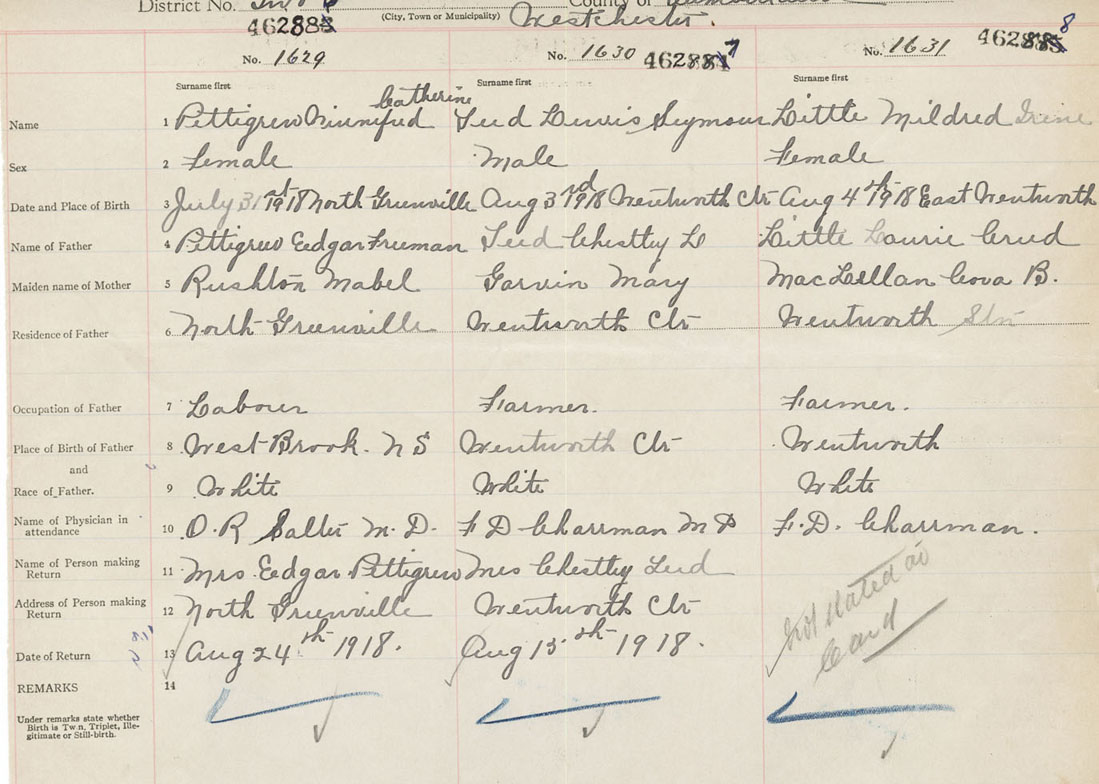 District No. County of
(City, Town or Municipality) Westchester.
462885 462887 462888
No. 1629 No. 1630 No. 1631
Surname first Surname first Surname first
Catherine
Name 1 Pettigrew Winnifred Teed Lewis Seymour Little Mildred Irene
Sex 2 Female Male Female
Date and Place of Birth 3 July 31st 1918 North Greenville Aug 3rd 1918 Wentworth Ctr Aug 4th 1918 East Wentworth
Name of Father 4 Pettigrew Eedgar Freeman Teed Chestley Little Laurie Creed
Maiden name of Mother 5 Rushton Mabel Garvin Mary MacLellan Cova B.
Residence of Father 6 North Greenville Wentworth Ctr Wentworth Stn
Occupation of Father 7 Labour Farmer. Farmer.
Place of Birth of Father 8 West Brook. N S Wentworth Ctr Wentworth
and
Race of Father. 9 White White White
Name of Physician in attendance 10 O. R Salter M. D. F D Charman M D F. D. Charman.
Name of Person making Return 11 Mrs. Eedgar Pettigrew Mrs Chestley Teed
Address of Person making Return 12 North Greenville Wentworth Ctr
Not stated on
Card
Date of Return 13 Aug 24th 1918. Aug 15th 1918.
REMARKS 14
Under remarks state whether
Birth is Twin, Triplet, Ille-
gitimate or Still-birth.